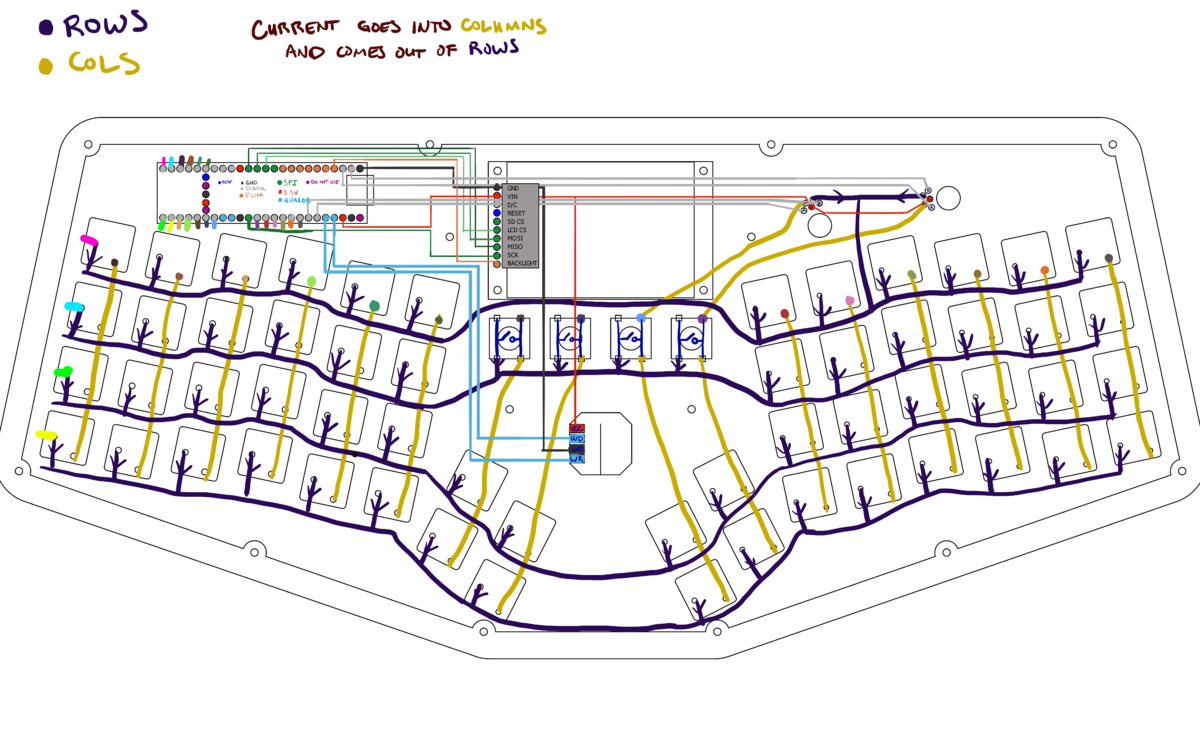 ROWS
COLS
CURRENT GOES INTO COLUMNS
AND COMES OUT OF ROWS
GND
DIGITAL
PWM
SPI
3.3V
ANALOG
DO NOT USE
GND
VIN
D/C
RESET
SD CS
LCD CS
MOSI
MISO
SCK
BACKLIGHT